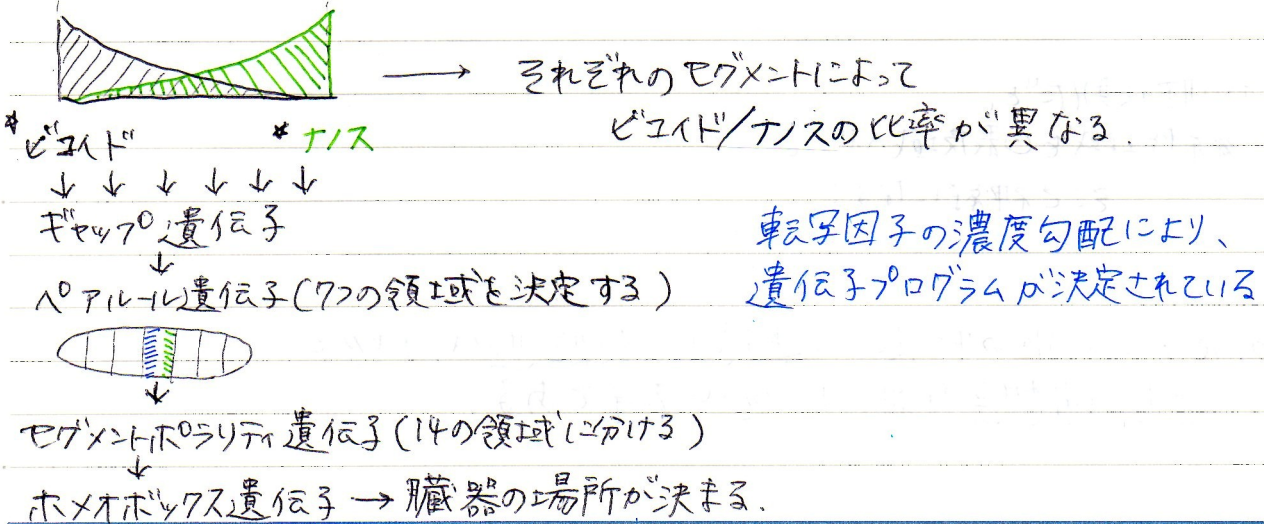 → それぞれのセグメントによって
ビコイド/ナノスの比率が異なる.
*ビコイド *ナノス
↓ ↓ ↓ ↓ ↓ ↓
ギャップ遺伝子
↓
ペアルール遺伝子(7つの領域を決定する)
転写因子の濃度勾配により、
遺伝子プログラムが決定されている
↓
セグメントポラリティ遺伝子(14の領域に分ける)
↓
ホメオボックス遺伝子→臓器の場所が決まる.